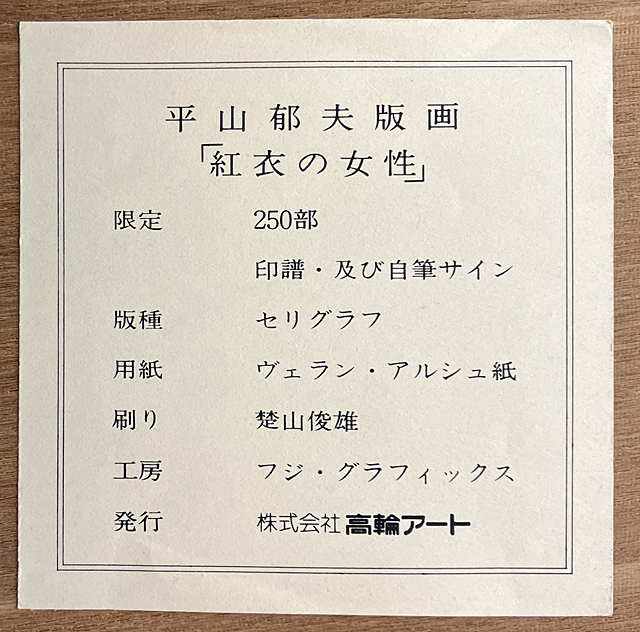 平山郁夫版画
「紅衣の女性」
限定 250部
印譜・及び自筆サイン
版種 セリグラフ
用紙 ヴェラン・アルシュ紙
刷り 楚山俊雄
工房 フジ・グラフィックス
発行 株式会社 高輪アート